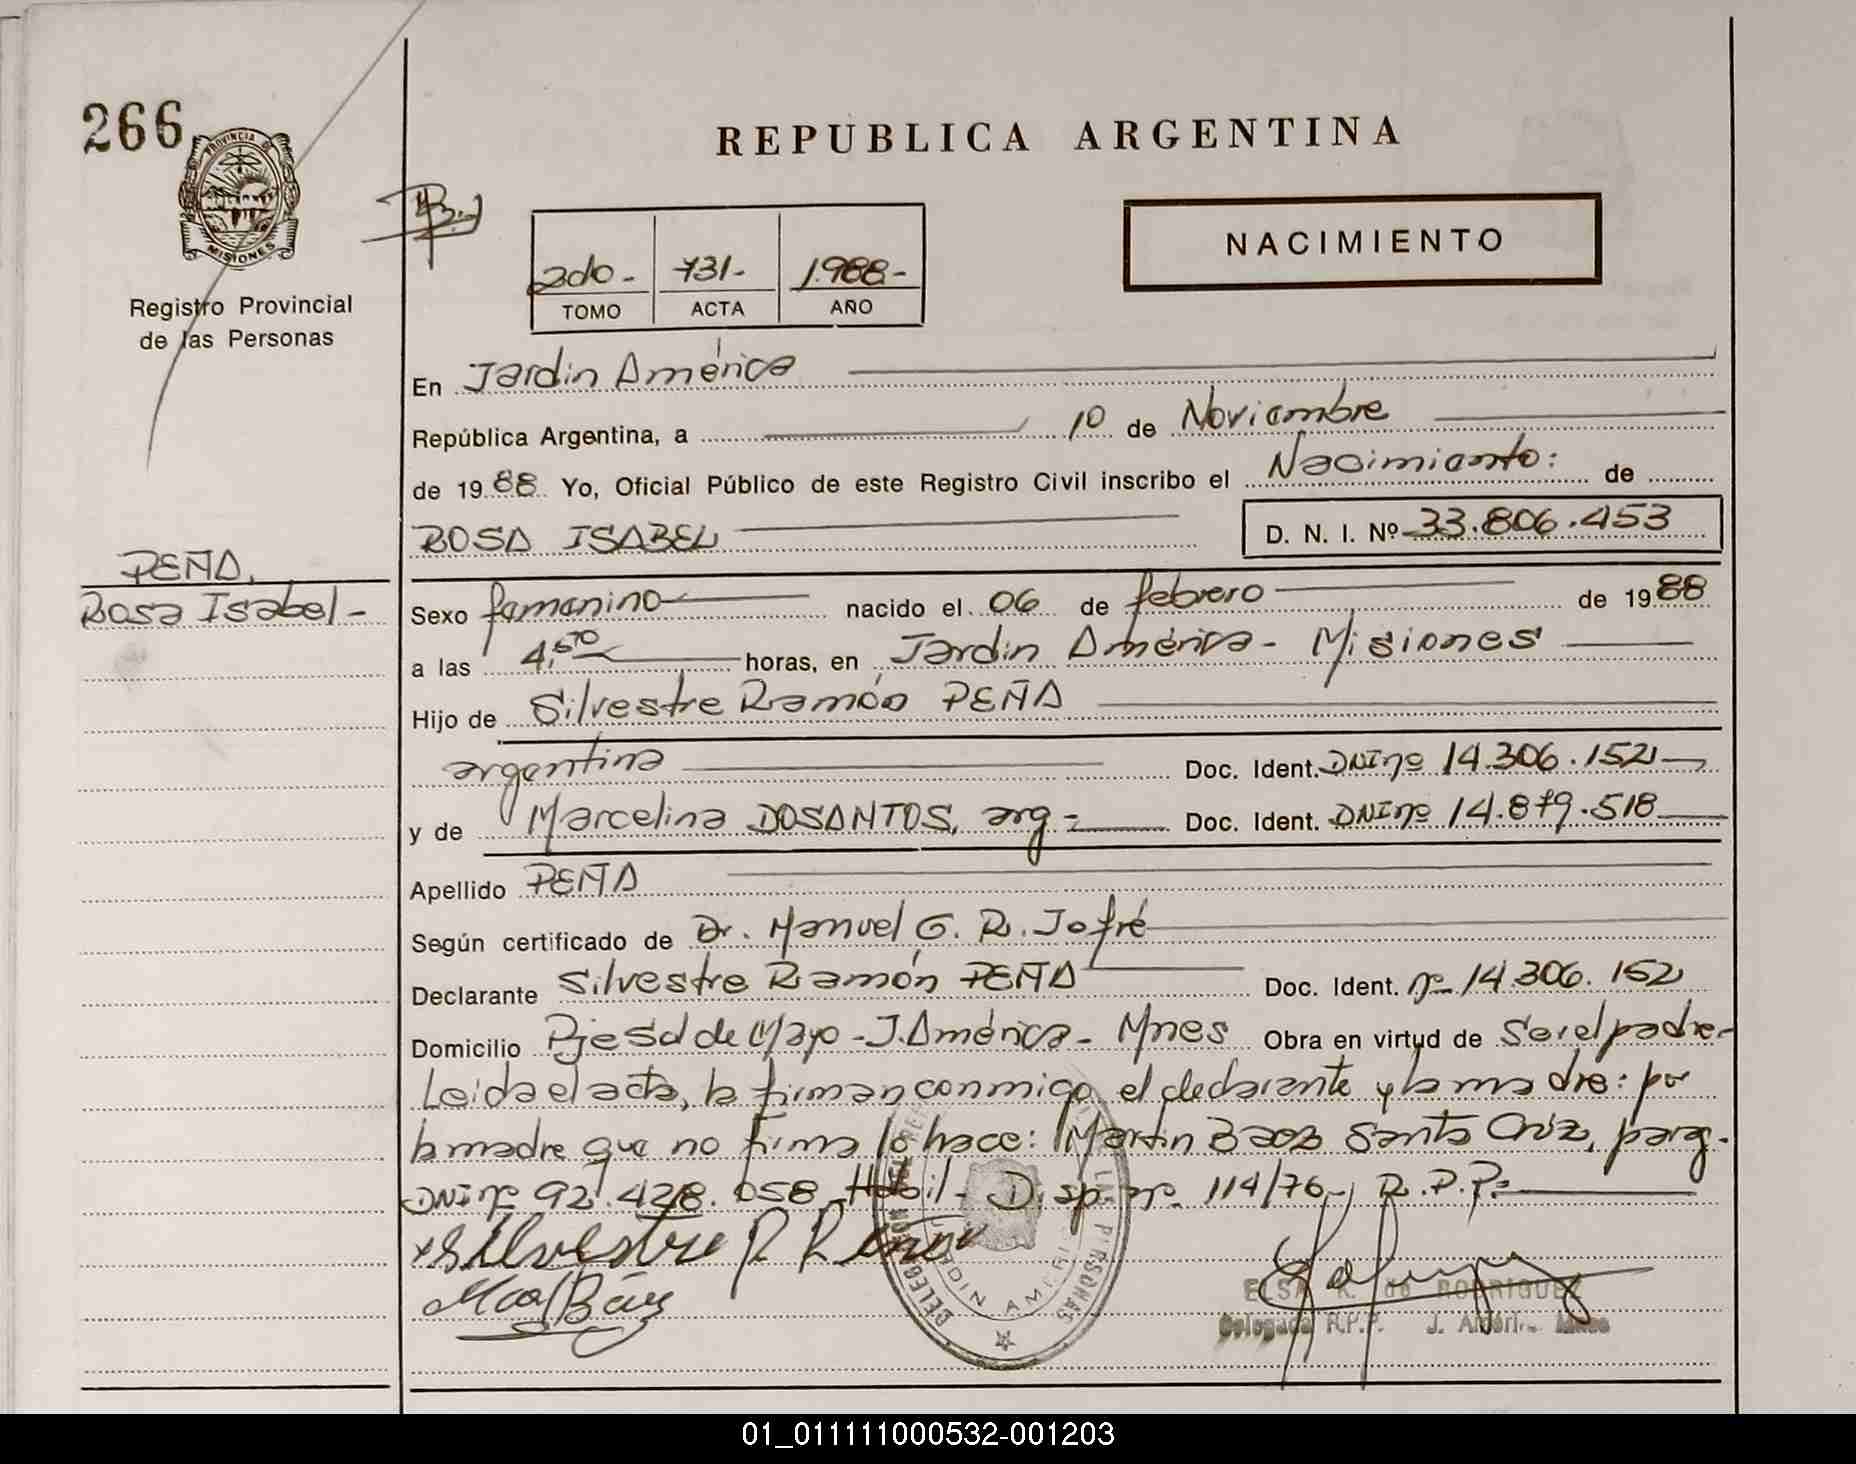 266
REPUBLICA ARGENTINA
PROVINCIA DE
MISIONES
Registro Provincial
de las Personas
NACIMIENTO
2do- 731- 1.988-
TOMO ACTA AÑO
En Jardin América
República Argentina, a 10 de Noviembre
de 1988 Yo, Oficial Público de este Registro Civil inscribo el Nacimiento: de
ROSA ISABEL D. N. I. Nº 33.806.453
PEÑA,
Rosa Isabel-
Sexo femenino nacido el 06 de febrero de 1988
a las 4,50 horas, en Jardin América - Misiones
Hijo de Silvestre Ramón PEÑA
argentina Doc. Ident. DNI nº 14.306.152
y de Marcelina DOSANTOS, arg- Doc. Ident. DNI nº 14.879.518
Apellido PEÑA
Según certificado de Dr. Manuel G. R. Jofré
Declarante Silvestre Ramón PEÑA Doc. Ident. nº 14.306.152
Domicilio Pje Sd de Mayo - J. América - Mnes Obra en virtud de Ser el padre-
Leida el acta, la firman conmigo el declarante y la madre: por
la madre que no firma lo hace: Martin Baez Santa Cruz, parag.
DNI nº 92.428.058 Habil- Disp. nº 114/76, R.P.P.
Silvestre R
Báez
DELEGACION
LAS PERSONAS
JARDIN AMERICA
ELSA R. de RODRIGUEZ
Delegada R.P.P. J. América Mnes
01_011111000532-001203